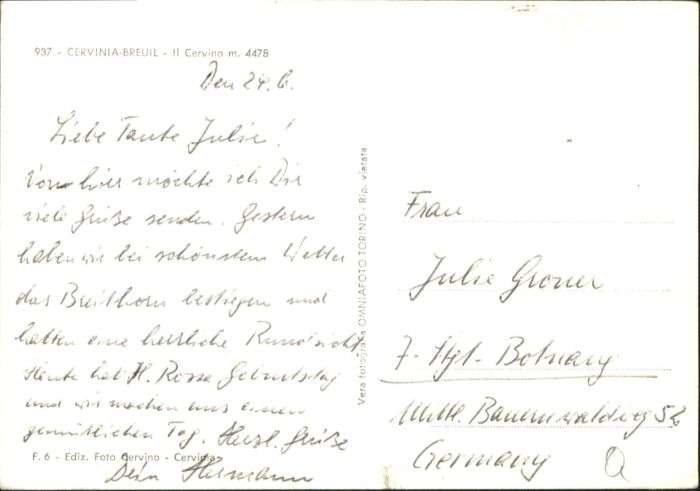 937 - CERVINIA-BREUIL - Il Cervino m. 4478
Den 24. 6.
Liebe Tante Julie!
Von hier möchte ich Dir
viele Grüße senden. Gestern
haben wir bei schönstem Wetter
das Breithorn bestiegen und
hatten eine herrliche Rundsicht.
Heute hat H. Rosse Geburtstag
und wir machen uns einen
gemütlichen Tag. Herzl. Grüße
Dein Hermann
F. 6 - Ediz. Foto Cervino - Cervinia
Vera fotografia OMNIAFOTO TORINO - Rip. vietata
Frau
Julie Groner
7. Stgt-Botnang
Mittl. Bauernwaldweg 52
Germany